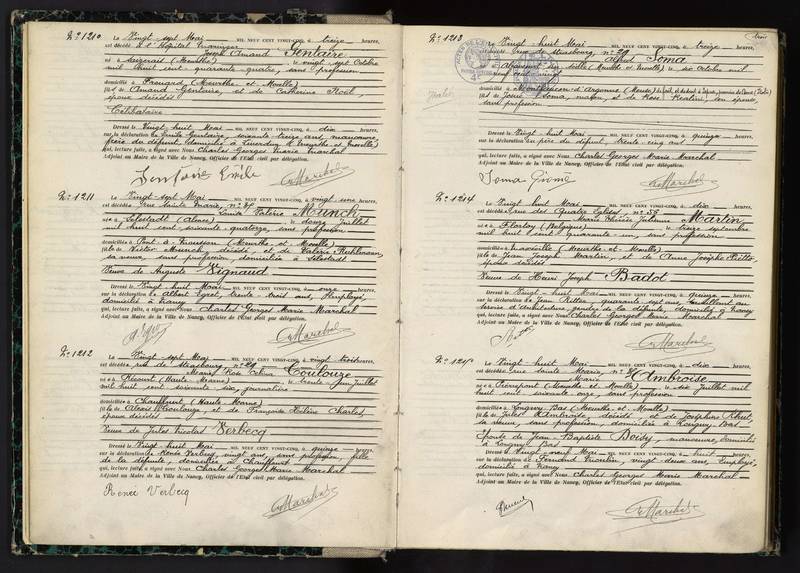 No 1210 Le Vingt-sept Mai MIL NEUF CENT VINGT-CINQ, à treize heures,
est décédé à l'Hôpital
Joseph Amand Gentaire
né à (Meurthe) le vingt sept Octobre
mil huit cent quarante quatre, sans profession
domicilié à Frouard (Meurthe et Moselle)
fils de Amand Gentaire, et de Catherine Noël,
époux décédés
Célibataire
Dressé le Vingt huit Mai MIL NEUF CENT VINGT-CINQ, à dix heures,
sur la déclaration de Gentaire, soixante treize ans, manœuvre,
frère du défunt, domicilié à Liverdun (Meurthe et Moselle)
qui, lecture faite, a signé avec Nous Charles Georges Marie Marchal
Adjoint au Maire de la Ville de Nancy, Officier de l'Etat civil par délégation.
Gentaire Emile Marchal
No 1211 Le Vingt-sept Mai MIL NEUF CENT VINGT-CINQ, à vingt une heures,
est décédée rue Sainte Marie, no
Louise Valérie Munch
née à Sélestadt (Alsace) le douze Juillet
mil huit cent soixante quatorze, sans profession
domiciliée à Pont à Mousson (Meurthe et Moselle)
fille de Victor Munch, décédé et de Valérie
sa veuve, sans profession domiciliée à Sélestadt
Veuve de Auguste Vignaud
Dressé le Vingt huit Mai MIL NEUF CENT VINGT-CINQ, à onze heures,
sur la déclaration de Albert trente-trois ans, Employé,
domicilié à Nancy
qui, lecture faite, a signé avec Nous Charles Georges Marie Marchal
Adjoint au Maire de la Ville de Nancy, Officier de l'Etat civil par délégation.
Marchal
No 1212 Le Vingt-sept Mai MIL NEUF CENT VINGT-CINQ, à vingt trois heures,
est décédée rue de Strasbourg, no
Rose Célina Toulouze
née à (Haute-Marne) le trente Juillet
mil huit cent soixante six, journalière
domiciliée à Chauffourt (Haute-Marne)
fille de Alexis Toulouze, et de Françoise Hélène Charles,
époux décédés
Veuve de Jules Nicolas Verbecq
Dressé le Vingt huit Mai MIL NEUF CENT VINGT-CINQ, à quinze heures,
sur la déclaration de Renée Verbecq, vingt ans, sans profession, fille
de la défunte, domiciliée à Chauffourt
qui, lecture faite, a signé avec Nous Charles Georges Marie Marchal
Adjoint au Maire de la Ville de Nancy, Officier de l'Etat civil par délégation.
Renée Verbecq Marchal
No 1213 Le Vingt huit Mai MIL NEUF CENT VINGT-CINQ, à treize heures,
est décédé rue de Strasbourg, no
Alfred Soma
né à (Meurthe et Moselle) le six Octobre mil
neuf cent
domicilié à Montfaucon d'Argonne (Meuse)
fils de Soma, maçon, et de Rose son épouse,
sans profession
Dressé le Vingt huit Mai MIL NEUF CENT VINGT-CINQ, à quinze heures,
sur la déclaration du père du défunt, trente-cinq ans
qui, lecture faite, a signé avec Nous Charles Georges Marie Marchal
Adjoint au Maire de la Ville de Nancy, Officier de l'Etat civil par délégation.
Soma Marchal
No 1214 Le Vingt huit Mai MIL NEUF CENT VINGT-CINQ, à dix heures,
est décédée rue des Quatre Eglises no
Marie Thérèse Julienne Martin
née à (Belgique) le treize septembre
mil huit cent quarante un, sans profession
domiciliée à Maxéville (Meurthe et Moselle)
fille de Jean Joseph Martin, et de Anne Josèphe
époux décédés
Veuve de Henri Joseph Badot
Dressé le Vingt huit Mai MIL NEUF CENT VINGT-CINQ, à quinze heures,
sur la déclaration de Jean quarante sept ans,
gendre de la défunte, domicilié à Nancy
qui, lecture faite, a signé avec Nous Charles Georges Marie Marchal
Adjoint au Maire de la Ville de Nancy, Officier de l'Etat civil par délégation.
Marchal
Le Vingt huit Mai MIL NEUF CENT VINGT-CINQ, à dix heures,
est décédée rue Sainte Marie, no
Marie Ambroise
née à Pierrepont (Meurthe et Moselle) le six Juillet mil
huit cent soixante onze, sans profession
domiciliée à Longwy Bas (Meurthe et Moselle)
fille de Jules Ambroise, décédé, et de Joséphine
sa veuve, sans profession, domiciliée à Longwy Bas
Epouse de Jean-Baptiste manœuvre, domicilié
à Longwy Bas
Dressé le Vingt neuf Mai MIL NEUF CENT VINGT-CINQ, à huit heures,
sur la déclaration de Fernand vingt deux ans, Employé,
domicilié à Nancy
qui, lecture faite, a signé avec Nous Charles Georges Marie Marchal
Adjoint au Maire de la Ville de Nancy, Officier de l'Etat civil par délégation.
Marchal